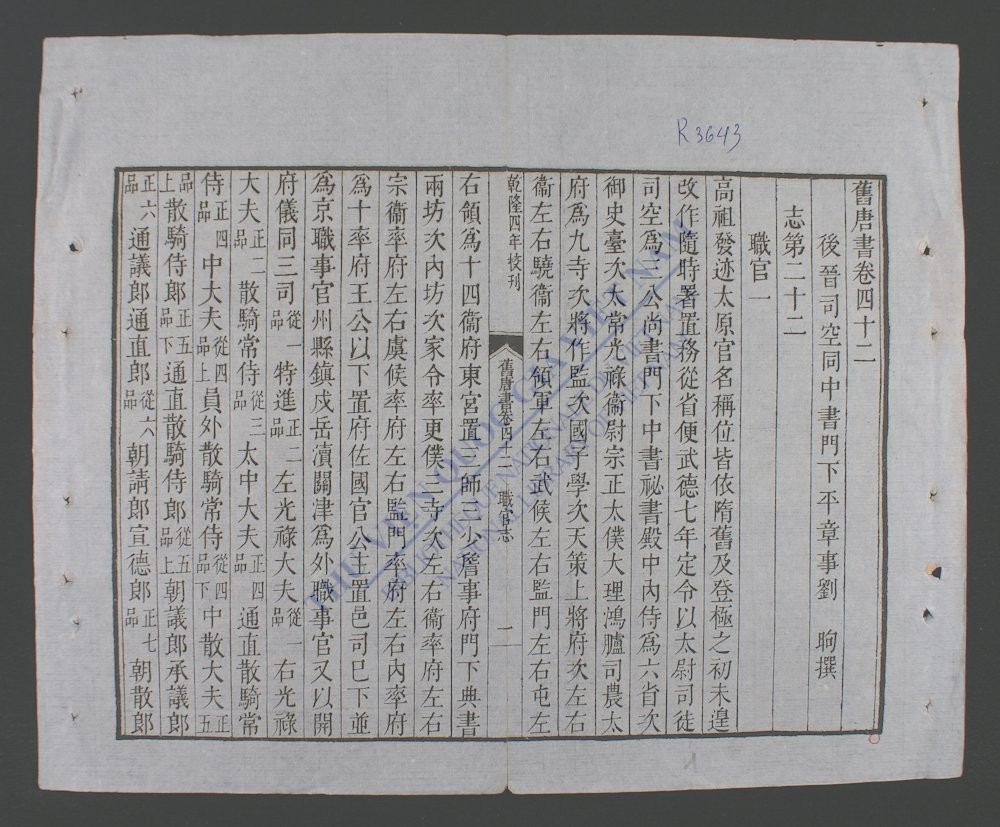 R 3643
舊唐書卷四十二
後晉司空同中書門下平章事劉 昫撰
志第二十二
職官一
高祖發迹太原官名稱位皆依隋舊及登極之初未遑
改作隨時署置務從省便武德七年定令以太尉司徒
司空為三公尚書門下中書祕書殿中內侍為六省次
御史臺次太常光祿衞尉宗正太僕大理鴻臚司農太
府為九寺次將作監次國子學次天策上將府次左右
衞左右驍衞左右領軍左右武候左右監門左右屯左
乾隆四年校刊
舊唐書卷四十二 職官志 一
右領為十四衞府東宮置三師三少詹事府門下典書
兩坊次內坊次家令率更僕三寺次左右衞率府左右
宗衞率府左右虞候率府左右監門率府左右內率府
為十率府王公以下置府佐國官公主置邑司已下並
為京職事官州縣鎮戍岳瀆關津為外職事官又以開
府儀同三司從一品特進正二品左光祿大夫從一品右光祿
大夫正二品散騎常侍從三品太中大夫正四品通直散騎常
侍正四品中大夫從四品上員外散騎常侍從四品下中散大夫正五
品上散騎侍郎正五品下通直散騎侍郎從五品上朝議郎承議郎
正六品通議郎通直郎從六品朝請郎宣德郎正七品朝散郎
THU VIEN QUOC GIA VIET NAM
BIBLIOTHEQUE NATIONALE DU VIETNAM
NATIONAL LIBRARY OF VIETNAM